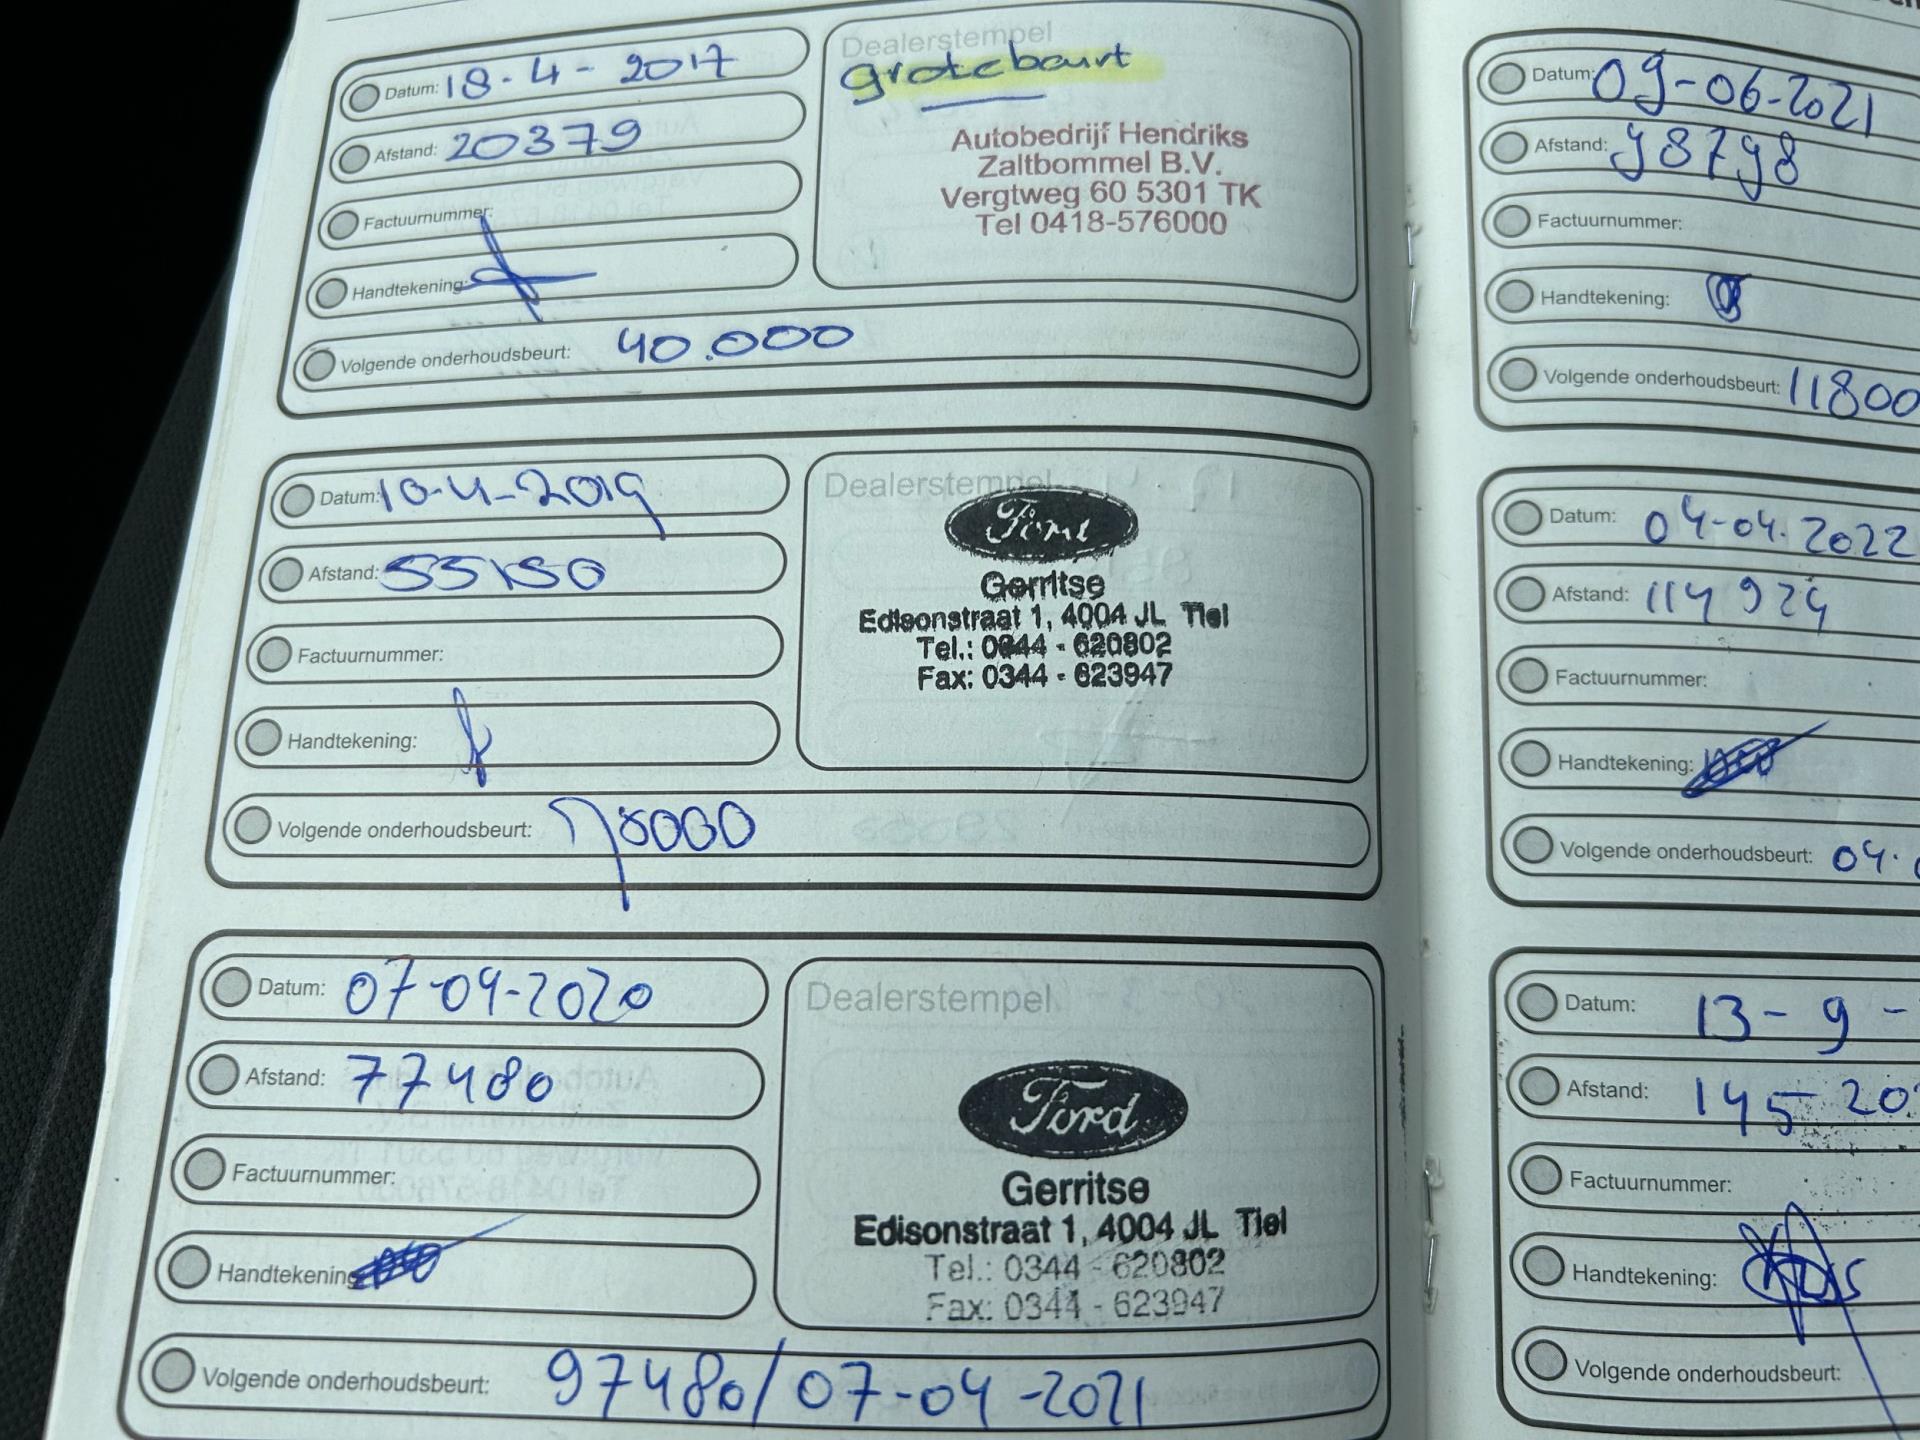 Datum: 18-4-2017
Afstand: 20379
Factuurnummer:
Handtekening:
Volgende onderhoudsbeurt: 40.000
Dealerstempel
grote beurt
Autobedrijf Hendriks
Zaltbommel B.V.
Vergtweg 60 5301 TK
Tel 0418-576000
Datum: 10-4-2019
Afstand: 55150
Factuurnummer:
Handtekening:
Volgende onderhoudsbeurt: 75000
Dealerstempel
Ford
Gerritse
Edisonstraat 1, 4004 JL Tiel
Tel.: 0344 - 620802
Fax: 0344 - 623947
Datum: 07-04-2020
Afstand: 77480
Factuurnummer:
Handtekening
Volgende onderhoudsbeurt: 97480/07-04-2021
Dealerstempel
Ford
Gerritse
Edisonstraat 1, 4004 JL Tiel
Tel.: 0344 - 620802
Fax: 0344 - 623947
Datum: 09-06-2021
Afstand: 98798
Factuurnummer:
Handtekening:
Volgende onderhoudsbeurt: 11800
Datum: 04-04-2022
Afstand: 114924
Factuurnummer:
Handtekening:
Volgende onderhoudsbeurt: 04-
Datum: 13-9-
Afstand: 145 20
Factuurnummer:
Handtekening:
Volgende onderhoudsbeurt: